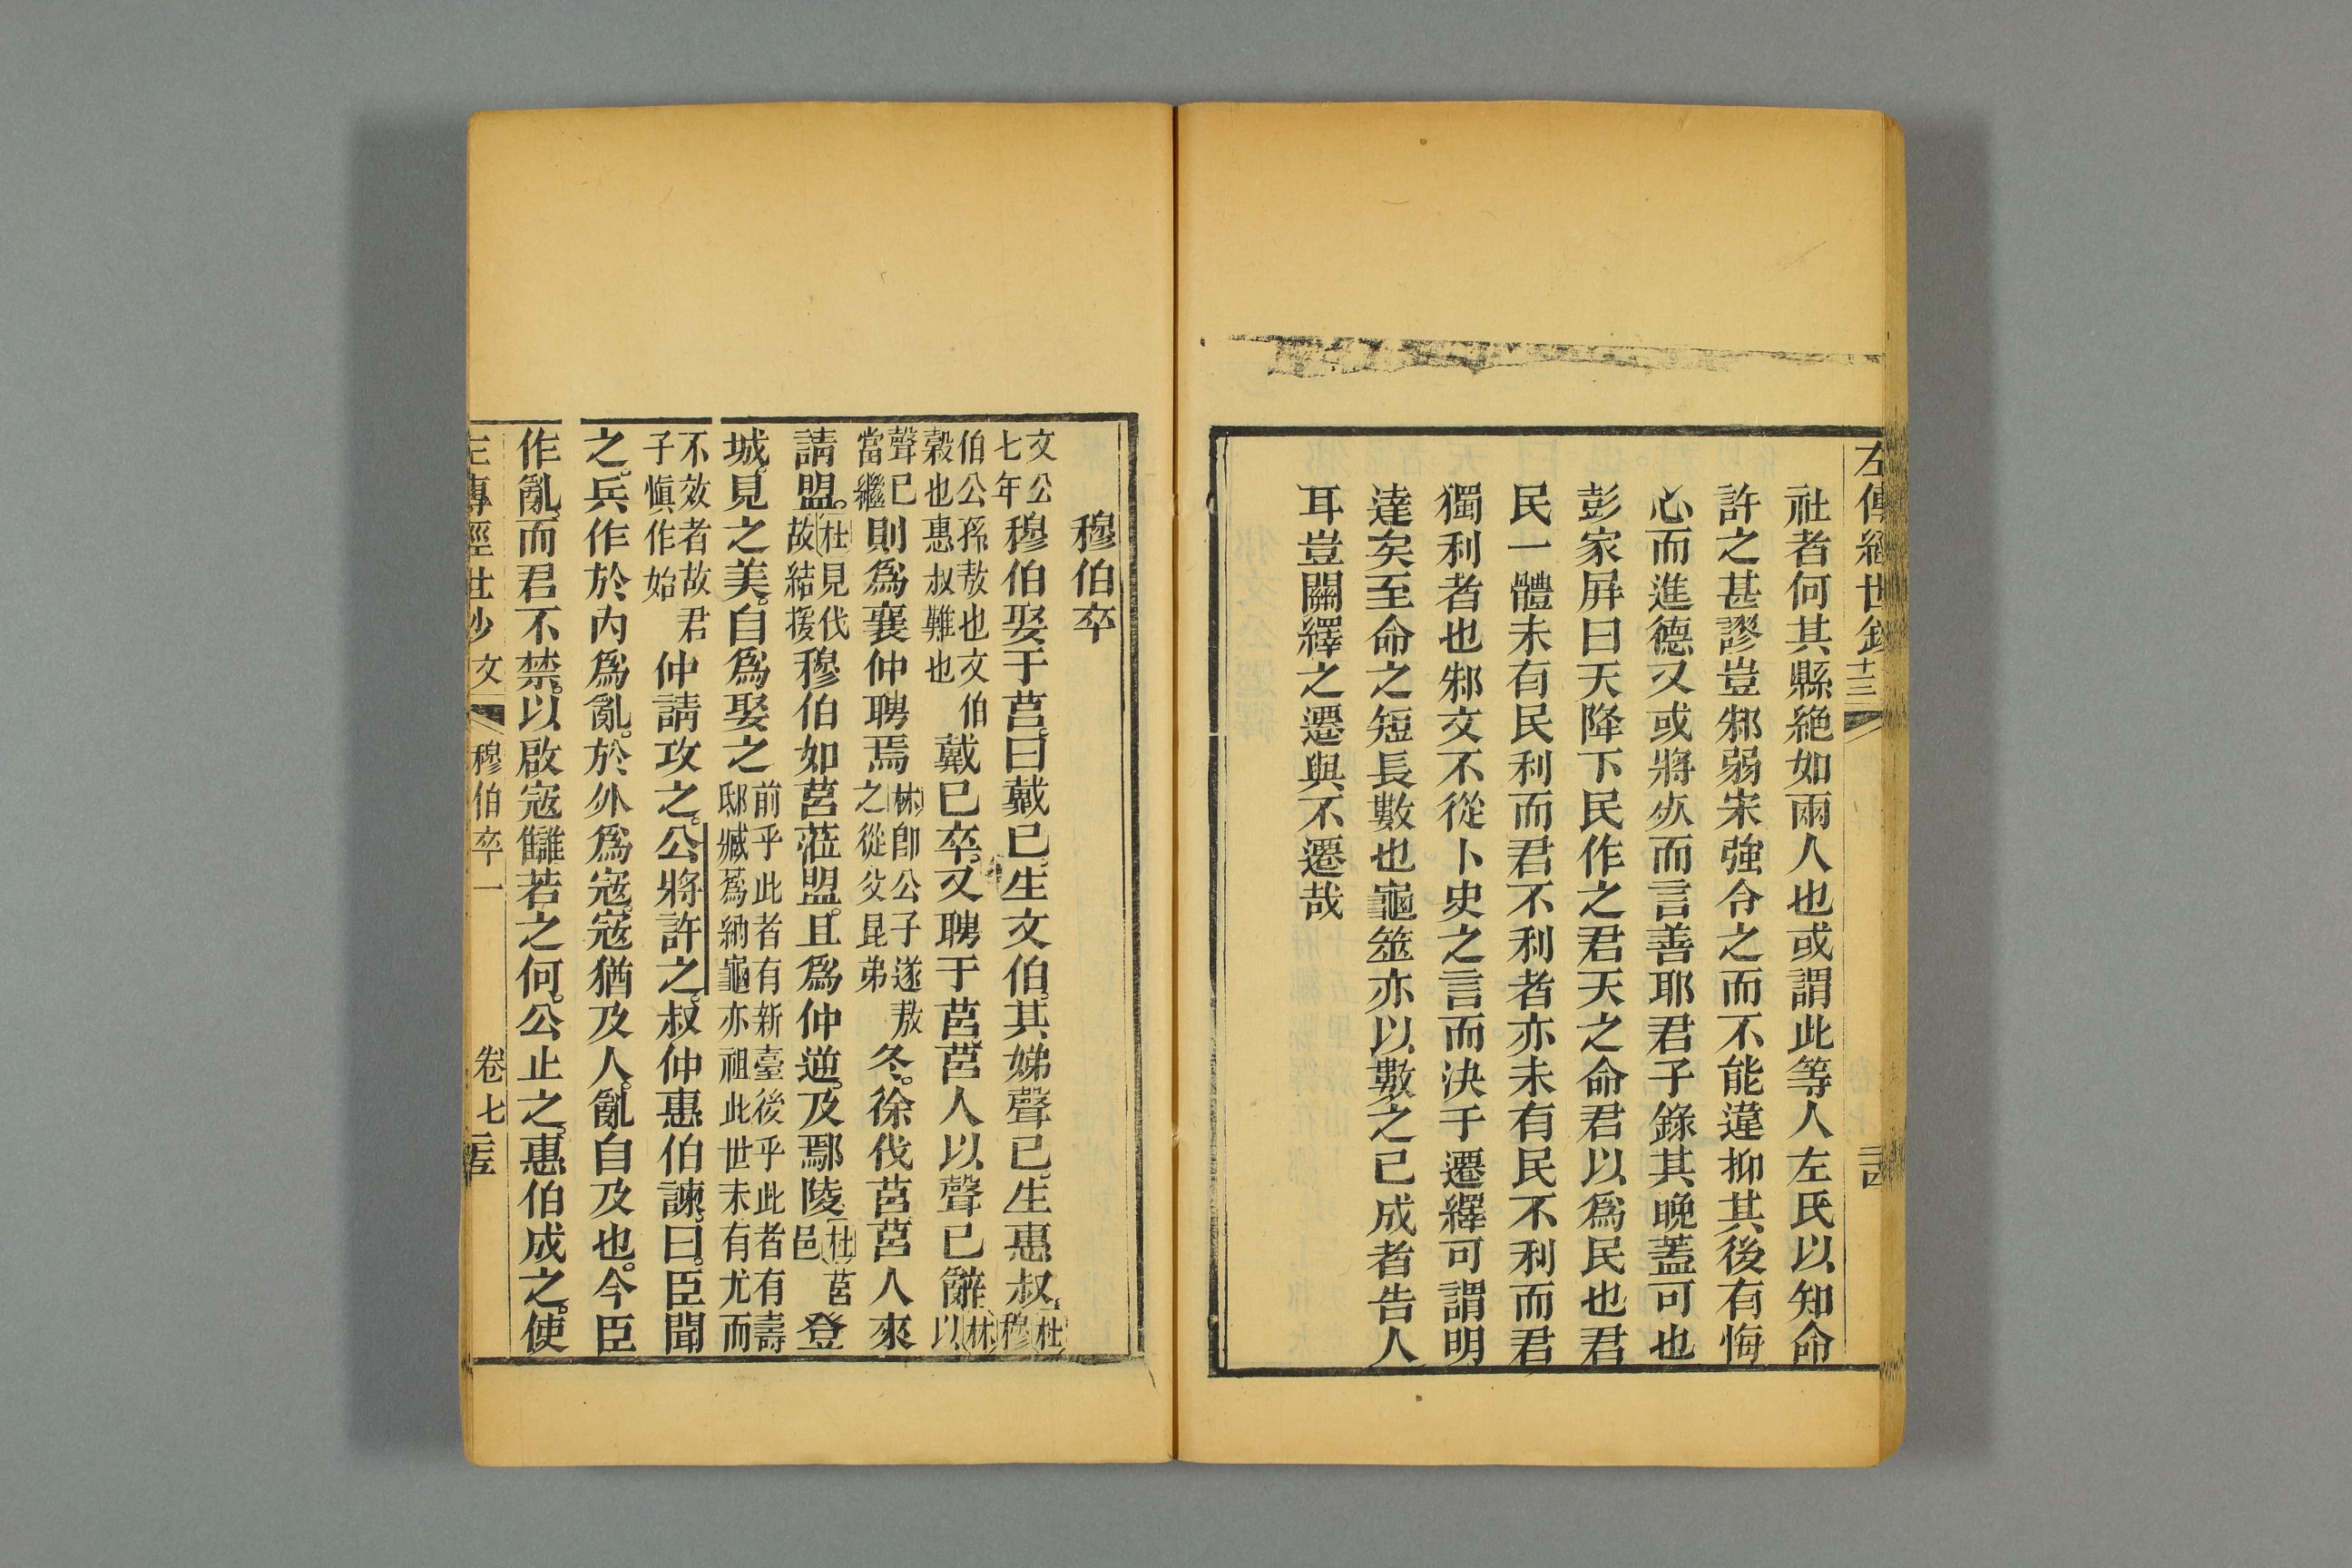 左傳經世鈔十三
社者何其縣絶如兩人也或謂此等人左氏以知命
許之甚謬豈邾弱宋強令之而不能違抑其後有悔
心而進德又或將死而言善耶君子錄其晚蓋可也
彭家屏曰天降下民作之君天之命君以爲民也君
民一體未有民利而君不利者亦未有民不利而君
獨利者也邾文不從卜史之言而決于遷繹可謂明
達矣至命之短長數也龜筮亦以數之已成者告人
耳豈關繹之遷與不遷哉
穆伯卒
文公七年穆伯娶于莒曰戴己生文伯其娣聲己生惠叔杜穆
伯公孫敖也文伯穀也惠叔難也戴己卒又聘于莒莒人以聲己辭林以
聲己當繼則爲襄仲聘焉林卽公子遂敖之從父昆弟冬徐伐莒莒人來
請盟杜見伐故結援穆伯如莒蒞盟且爲仲逆及鄢陵杜莒邑登
城見之美自爲娶之前乎此者有新臺後乎此者有壽邸臧爲納龜亦祖此世未有尤而
不效者故君子愼作始仲請攻之公將許之叔仲惠伯諫曰臣聞
之兵作於內爲亂於外爲寇寇猶及人亂自及也今臣
作亂而君不禁以啟寇讎若之何公止之惠伯成之使
左傳經世鈔 文 穆伯卒一 卷七